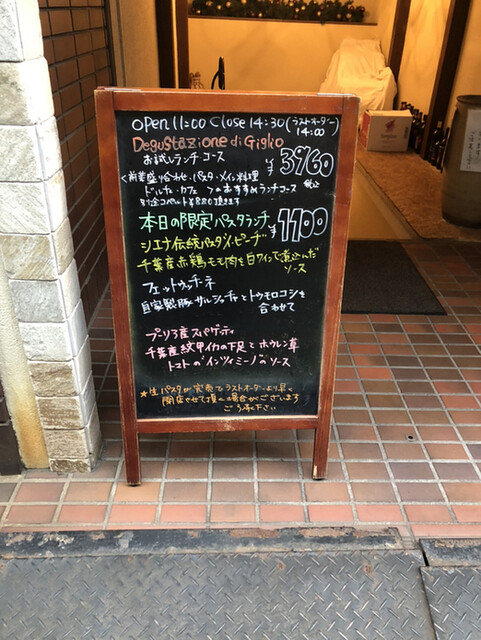 open 11:00 Close 14:30(ラストオーダー 14:00)
Degustazione di Giglio
お試しランチコース ¥3960 税込
<前菜盛り合わせ・パスタ・メイン料理
ドルチェ・カフェ>のおすすめランチコース
別途コペルト¥880頂きます
本日の限定パスタランチ ¥1100
シエナ伝統パスタ"ピーチ"
千葉産赤鶏モモ肉を白ワインで煮込んだ
ソース
フェットゥチーネ
自家製豚サルシッチャとトウモロコシを
合わせて
プーリア産スパゲティ
千葉産紋甲イカの下足とホウレン草
トマトの"インツィミーノ"ソース
★生パスタが完売でラストオーダーより早く
閉店させて頂く場合がございます
ご了承下さい